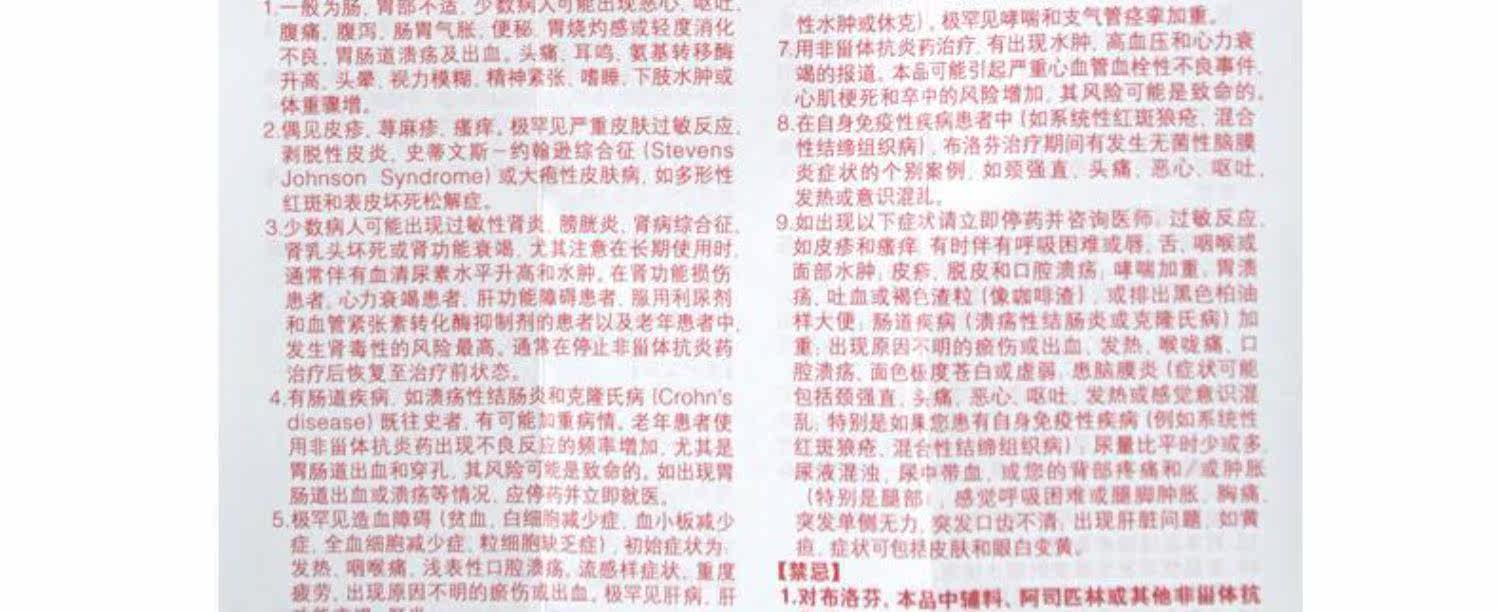 1.一般为肠、胃部不适，少数病人可能出现恶心、呕吐、
腹痛、腹泻、肠胃气胀、便秘、胃烧灼感或轻度消化
不良、胃肠道溃疡及出血。头痛、耳鸣、氨基转移酶
升高、头晕、视力模糊、精神紧张、嗜睡、下肢水肿或
体重骤增。
2.偶见皮疹、荨麻疹、瘙痒。极罕见严重皮肤过敏反应，
剥脱性皮炎、史蒂文斯-约翰逊综合征(Stevens
Johnson Syndrome)或大疱性皮肤病，如多形性
红斑和表皮坏死松解症。
3.少数病人可能出现过敏性肾炎、膀胱炎、肾病综合征、
肾乳头坏死或肾功能衰竭，尤其注意在长期使用时，
通常伴有血清尿素水平升高和水肿。在肾功能损伤
患者、心力衰竭患者、肝功能障碍患者、服用利尿剂
和血管紧张素转化酶抑制剂的患者以及老年患者中，
发生肾毒性的风险最高。通常在停止非甾体抗炎药
治疗后恢复至治疗前状态。
4.有肠道疾病，如溃疡性结肠炎和克隆氏病(Crohn's
disease)既往史者，有可能加重病情。老年患者使
用非甾体抗炎药出现不良反应的频率增加，尤其是
胃肠道出血和穿孔，其风险可能是致命的。如出现胃
肠道出血或溃疡等情况，应停药并立即就医。
5.极罕见造血障碍(贫血、白细胞减少症、血小板减少
症、全血细胞减少症、粒细胞缺乏症)，初始症状为：
发热、咽喉痛、浅表性口腔溃疡、流感样症状、重度
疲劳、出现原因不明的瘀伤或出血。极罕见肝病、肝
性水肿或休克)，极罕见哮喘和支气管痉挛加重。
7.用非甾体抗炎药治疗，有出现水肿、高血压和心力衰
竭的报道。本品可能引起严重心血管血栓性不良事件、
心肌梗死和卒中的风险增加，其风险可能是致命的。
8.在自身免疫性疾病患者中(如系统性红斑狼疮、混合
性结缔组织病)，布洛芬治疗期间有发生无菌性脑膜
炎症状的个别案例，如颈强直、头痛、恶心、呕吐、
发热或意识混乱。
9.如出现以下症状请立即停药并咨询医师：过敏反应，
如皮疹和瘙痒，有时伴有呼吸困难或唇、舌、咽喉或
面部水肿；皮疹、脱皮和口腔溃疡；哮喘加重；胃溃
疡、吐血或褐色渣粒(像咖啡渣)，或排出黑色柏油
样大便；肠道疾病(溃疡性结肠炎或克隆氏病)加
重；出现原因不明的瘀伤或出血、发热、喉咙痛、口
腔溃疡、面色极度苍白或虚弱；患脑膜炎(症状可能
包括颈强直、头痛、恶心、呕吐、发热或感觉意识混
乱，特别是如果您患有自身免疫性疾病(例如系统性
红斑狼疮、混合性结缔组织病)；尿量比平时少或多、
尿液混浊、尿中带血，或您的背部疼痛和/或肿胀
(特别是腿部)，感觉呼吸困难或腿脚肿胀、胸痛、
突发单侧无力、突发口齿不清；出现肝脏问题，如黄
疸，症状可包括皮肤和眼白变黄。
【禁忌】
1.对布洛芬、本品中辅料、阿司匹林或其他非甾体抗